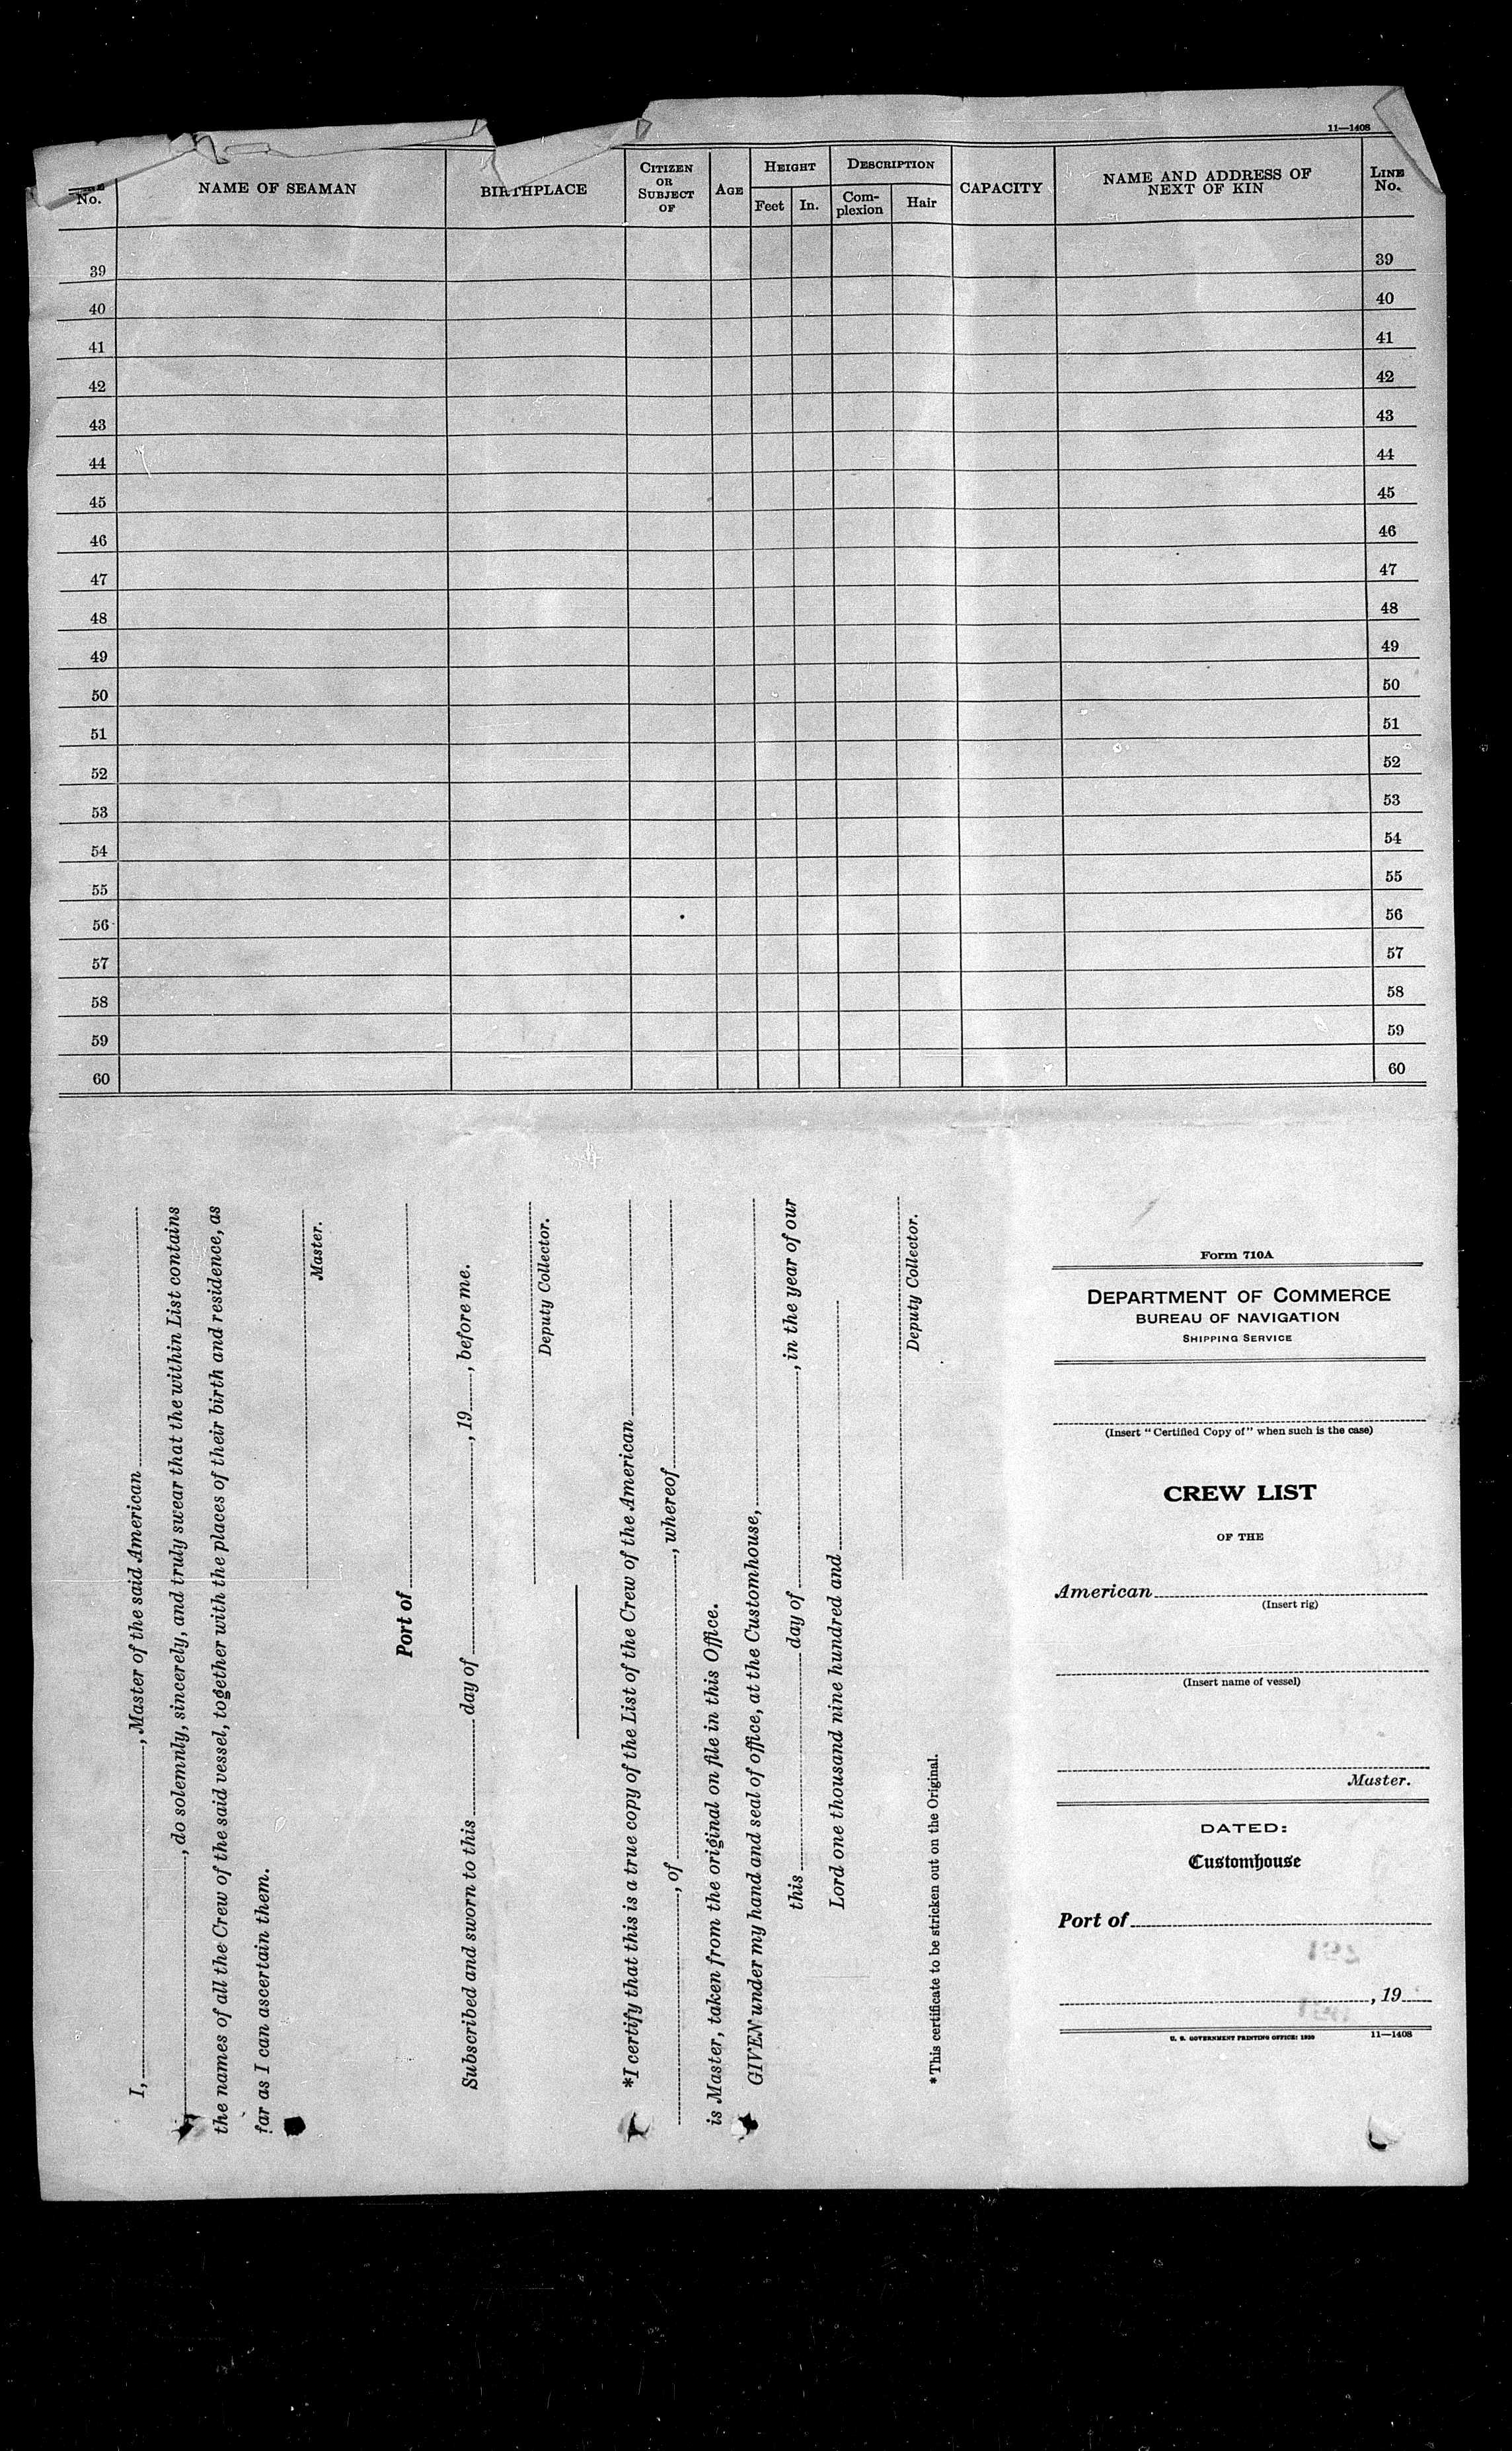 11—1408
No. NAME OF SEAMAN BIRTHPLACE CITIZEN OR SUBJECT OF AGE HEIGHT Feet In. DESCRIPTION Com-plexion Hair CAPACITY NAME AND ADDRESS OF NEXT OF KIN LINE No.
39 39
40 40
41 41
42 42
43 43
44 44
45 45
46 46
47 47
48 48
49 49
50 50
51 51
52 52
53 53
54 54
55 55
56 56
57 57
58 58
59 59
60 60
I, , Master of the said American
, do solemnly, sincerely, and truly swear that the within List contains
the names of all the Crew of the said vessel, together with the places of their birth and residence, as
far as I can ascertain them.
Master.
Port of
Subscribed and sworn to this day of , 19 , before me.
Deputy Collector.
*I certify that this is a true copy of the List of the Crew of the American
, of , whereof
is Master, taken from the original on file in this Office.
GIVEN under my hand and seal of office, at the Customhouse,
this day of , in the year of our
Lord one thousand nine hundred and
Deputy Collector.
*This certificate to be stricken out on the Original.
Form 710A
DEPARTMENT OF COMMERCE
BUREAU OF NAVIGATION
SHIPPING SERVICE
(Insert "Certified Copy of" when such is the case)
CREW LIST
OF THE
American
(Insert rig)
(Insert name of vessel)
Master.
DATED:
Customhouse
Port of
, 19
U. S. GOVERNMENT PRINTING OFFICE: 1930 11—1408